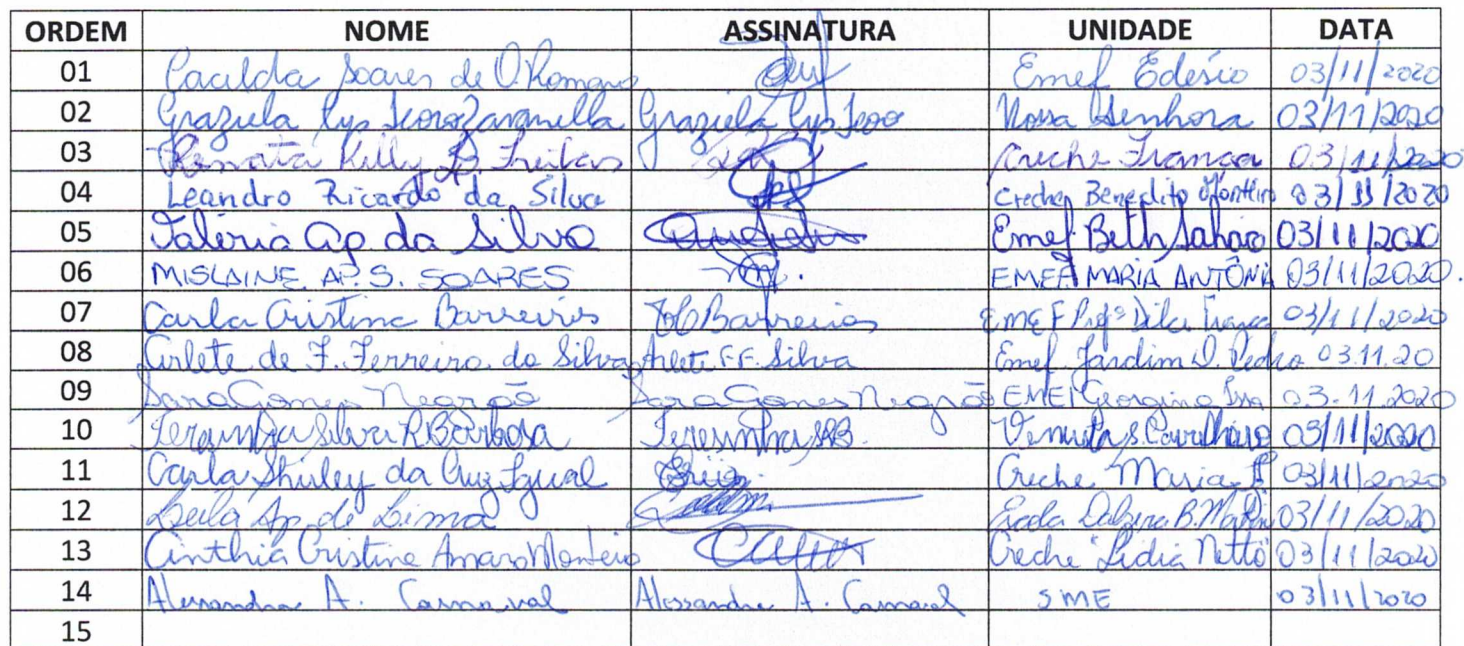 ORDEM NOME ASSINATURA UNIDADE DATA
01 Soares de O. Romano Emef Edésio 03/11/2020
02 Graziela Lys Zavanella Graziela Lys Nossa Senhora 03/11/2020
03 Renata Kelly B. Freitas Creche Franca 03/11/2020
04 Leandro Ricardo da Silva Creche Benedito Monteiro 03/11/2020
05 Valéria Ap da Silva Emef Beth Sahão 03/11/2020
06 MISLAINE AP. S. SOARES EMEF MARIA ANTÔNIA 03/11/2020.
07 Carla Cristina Barreiros Barreiros EMEF Profª 03/11/2020
08 Arlete de F. Ferreira da Silva Arlete F.F. Silva Emef Jardim D. Pedro 03.11.20
09 Sara Gomes Negrão Sara Gomes Negrão EMEI Georgina 03.11.2020
10 Teresinha Silva R Barbosa Teresinha SRB 03/11/2020
11 Carla Shirley da Cruz Creche Maria 03/11/2020
12 Leila Ap. de Lima 03/11/2020
13 Cinthia Cristine Amaro Monteiro Creche "Lidia Netto" 03/11/2020
14 Alessandra A. Carnaval Alessandra A. Carnaval SME 03/11/2020
15